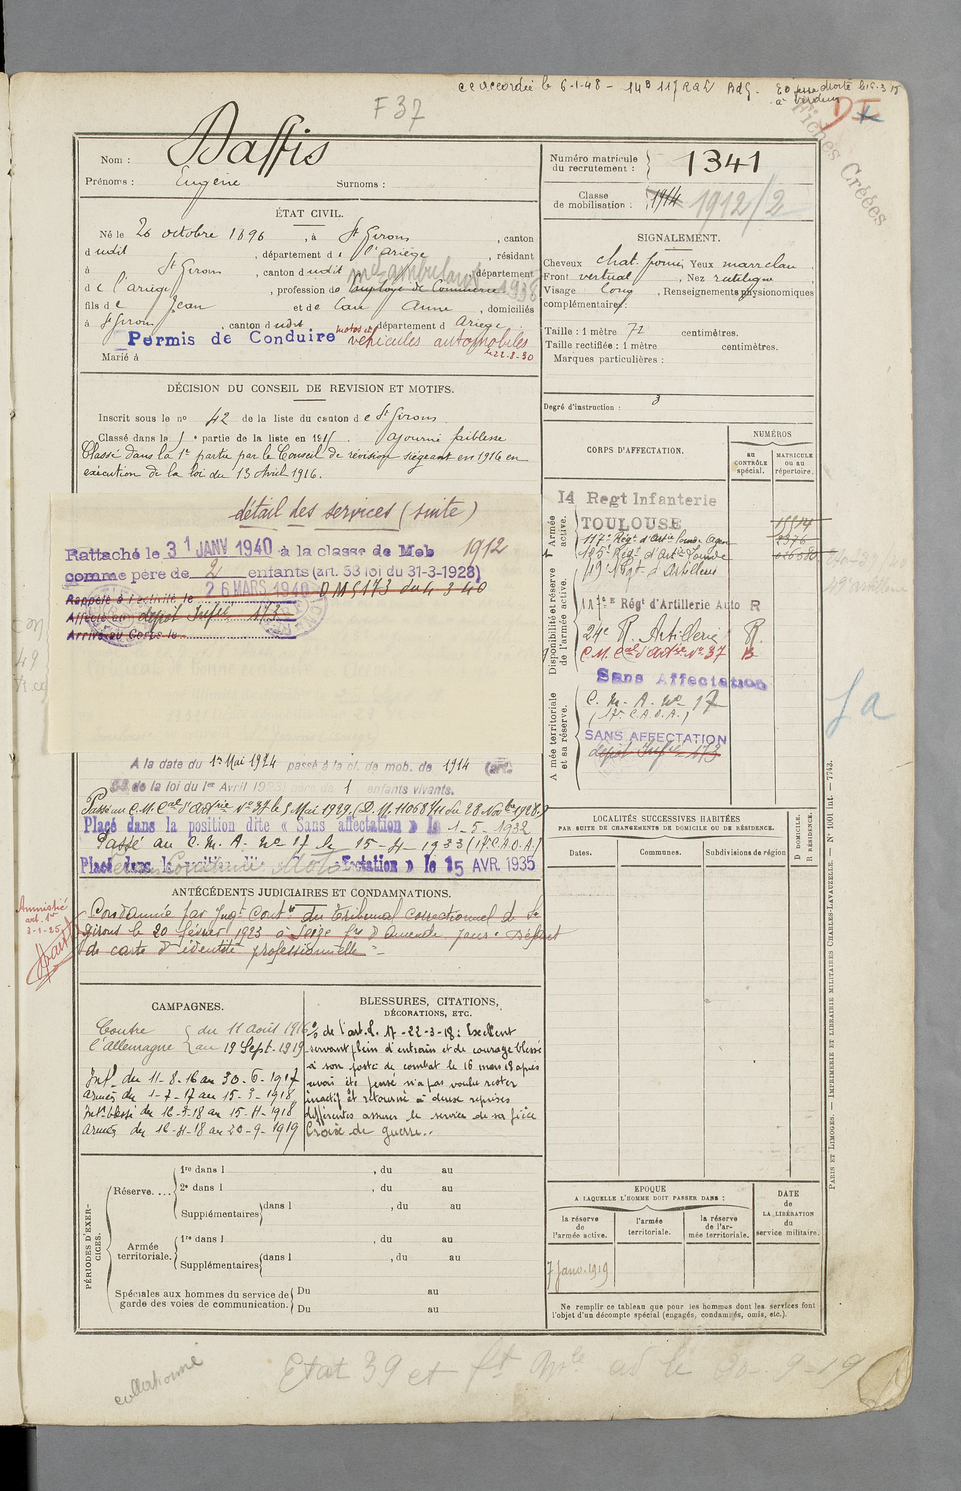 cc accordée le 6-1-48 - 14B 117 RAL Bdg. EO fesse droite le 16.3.18
à Verdun
F 37
DI
Fiches Créées
Nom : Daffis
Prénoms : Eugène Surnoms :
Numéro matricule du recrutement : 1341
Classe de mobilisation : 1914 1912/2
ÉTAT CIVIL.
Né le 26 octobre 1896, à St Girons, canton
dudit, département de l'Ariège, résidant
à St Girons, canton dudit, département
de l'ariège, profession de Employé de Commerce
md ambulant 1938
fils de Jean et de Cau Anne, domiciliés
à St Girons, canton dudit, département d Ariège.
Permis de Conduire motos et véhicules automobiles
le 22-8-30
Marié à
SIGNALEMENT.
Cheveux chat. foncé, Yeux marr clair
Front vertical, Nez rectiligne
Visage long, Renseignements physionomiques
complémentaires :
Taille : 1 mètre 72 centimètres.
Taille rectifiée : 1 mètre centimètres.
Marques particulières :
Degré d'instruction : 3
DÉCISION DU CONSEIL DE REVISION ET MOTIFS.
Inscrit sous le no 42 de la liste du canton de St Girons
Classé dans la 5e partie de la liste en 1915. Ajourné faiblesse
Classé dans la 1e partie par le Conseil de révision siégeant en 1916 en
exécution de la loi du 13 Avril 1916.
détail des services (suite)
Rattaché le 31 JANV 1940 à la classe de Mob 1912
comme père de 2 enfants (art. 58 loi du 31-3-1928)
Rappelé à l'activité le 26 MARS 1940 D M 5173 du 4-3-40
Affecté au dépôt Infie 173
Arrivé au Corps le
A la date du 1er Mai 1924 passé à la cl. de mob. de 1914 (art.
58 de la loi du 1er Avril 1923) père de 1 enfants vivants.
Passé au C.M. Cal d'Artie No 37 le 5 Mai 1929 (D.M. 11068 7/11 du 28 Novbre 1928.)
Placé dans la position dite « Sans affectation » le 1-5-1932
Passé au C. M. A. No 17 le 15-4-1933 (17e C.A.O.A.)
Placé dans la position dite affectation » le 15 AVR. 1935
CORPS D'AFFECTATION.
NUMÉROS
au CONTRÔLE spécial.
MATRICULE ou au répertoire.
Armée active.
14 Regt Infanterie
TOULOUSE
117e Régt d'Artie Lourde Agen
2376
185e Régt d'Artie Lourde
49e Régt d'Artillerie
Disponibilité et réserve de l'armée active.
117e Régt d'Artillerie Auto R
24e R. Artillerie R.
C.M. Cal d'Artie No 37 R
Sans Affectation
Armée territoriale et sa réserve.
C. M. A. No 17
(17e C.A.O.A.)
SANS AFFECTATION
dépôt Infie 173
LOCALITÉS SUCCESSIVES HABITÉES
PAR SUITE DE CHANGEMENTS DE DOMICILE OU DE RÉSIDENCE.
Dates. Communes. Subdivisions de région
D DOMICILE. R RÉSIDENCE.
ANTÉCÉDENTS JUDICIAIRES ET CONDAMNATIONS.
Amnistié
art. 1er
3-1-25
Condamné par Jugt Contre du Tribunal Correctionnel de St
Girons le 20 février 1923 à Seize frs d'Amende pour : Défaut
de carte d'identité professionnelle
CAMPAGNES.
Contre l'Allemagne du 11 août 1916
au 19 Sept. 1919
Int. du 11-8-16 au 30-6-1917
armées du 1-7-17 au 15-3-1918
Int. blessé du 16-3-18 au 15-4-1918
armées du 16-4-18 au 20-9-1919
BLESSURES, CITATIONS,
DÉCORATIONS, ETC.
de l'art. L. 17-22-3-18 : Excellent
servant plein d'entrain et de courage blessé
à son poste de combat le 16 mars 18 après
avoir été pansé n'a pas voulu rester
inactif et retourné à deux reprises
différentes assurer le service de sa pièce
Croix de guerre.
PÉRIODES D'EXERCICES.
Réserve....
1re dans l , du au
2e dans l , du au
Supplémentaires dans l , du au
Armée territoriale.
1re dans l , du au
Supplémentaires dans l , du au
Spéciales aux hommes du service de garde des voies de communication.
Du au
Du au
EPOQUE
A LAQUELLE L'HOMME DOIT PASSER DANS :
la réserve de l'armée active.
l'armée territoriale.
la réserve de l'armée territoriale.
DATE de LA LIBÉRATION du service militaire.
7 Janv. 1919
Ne remplir ce tableau que pour les hommes dont les services font
l'objet d'un décompte spécial (engagés, condamnés, omis, etc.).
PARIS ET LIMOGES. — IMPRIMERIE ET LIBRAIRIE MILITAIRES CHARLES-LAVAUZELLE. — No 1001 int. — 7743.
collationné
Etat 39 et le 30-9-19